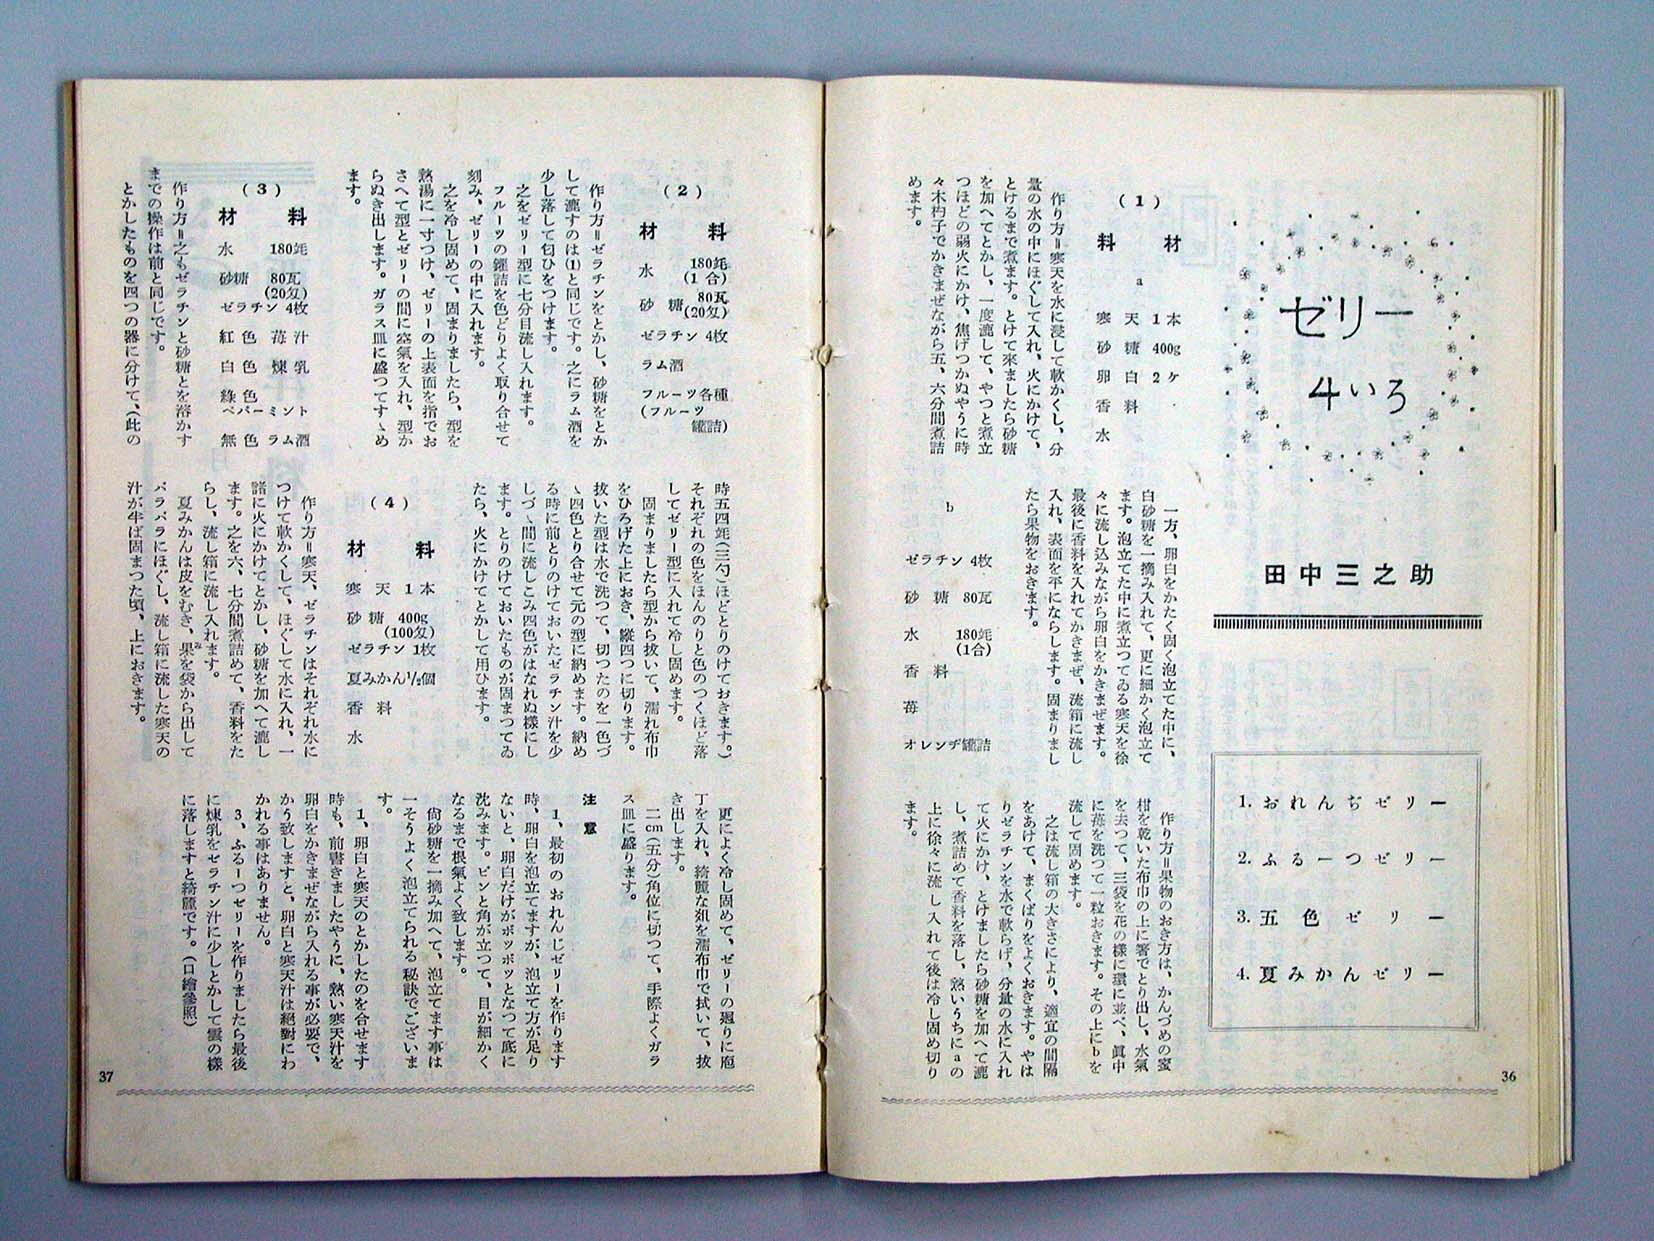 ゼリー
4いろ
田中三之助
1. おれんぢゼリー
2. ふるーつゼリー
3. 五色ゼリー
4. 夏みかんゼリー
(1)
材料
a
寒天 1本
砂糖 400g
卵白 2ケ
香料
水
作り方=寒天を水に浸して軟かくし、分
量の水の中にほぐして入れ、火にかけて、
とけるまで煮ます。とけて來ましたら砂糖
を加へてとかし、一度漉して、やつと煮立
つほどの弱火にかけ、焦げつかぬやうに時
々木杓子でかきまぜながら五、六分間煮詰
めます。
一方、卵白をかたく固く泡立てた中に、
白砂糖を一摘み入れて、更に細かく泡立て
ます。泡立てた中に煮立つてゐる寒天を徐
々に流し込みながら卵白をかきまぜます。
最後に香料を入れてかきまぜ、流箱に流し
入れ、表面を平にならします。固まりまし
たら果物をおきます。
b
ゼラチン 4枚
砂糖 80瓦
水 180竓
(1合)
香料
苺
オレンヂ罐詰
作り方=果物のおき方は、かんづめの蜜
柑を乾いた布巾の上に箸でとり出し、水氣
を去つて、三袋を花の樣に環に並べ、眞中
に苺を洗つて一粒おきます。その上にbを
流して固めます。
之は流し箱の大きさにより、適宜の間隔
をあけて、まくばりをよくおきます。やは
りゼラチンを水で軟らげ、分量の水に入れ
て火にかけ、とけましたら砂糖を加へて漉
し、煮詰めて香料を落し、熱いうちにaの
上に徐々に流し入れて後は冷し固め切り
ます。
36
(2)
材料
水 180竓
(1合)
砂糖 80瓦
(20匁)
ゼラチン 4枚
ラム酒
フルーツ各種
(フルーツ
罐詰)
作り方=ゼラチンをとかし、砂糖をとか
して漉すのは(1)と同じです。之にラム酒を
少し落して匂ひをつけます。
之をゼリー型に七分目流し入れます。
フルーツの罐詰を色どりよく取り合せて
刻み、ゼリーの中に入れます。
之を冷し固めて、固まりましたら、型を
熱湯に一寸つけ、ゼリーの上表面を指でお
さへて型とゼリーの間に空氣を入れ、型か
らぬき出します。ガラス皿に盛つてすゝめ
ます。
(3)
材料
水 180竓
砂糖 80瓦
(20匁)
ゼラチン 4枚
紅色 苺汁
白色 煉乳
綠色
ペパーミント
無色 ラム酒
作り方=之もゼラチンと砂糖とを溶かす
までの操作は前と同じです。
とかしたものを四つの器に分けて、(此の
時五四竓(三勺)ほどとりのけておきます。)
それぞれの色をほんのりと色のつくほど落
してゼリー型に入れて冷し固めます。
固まりましたら型から抜いて、濡れ布巾
をひろげた上におき、縱四つに切ります。
抜いた型は水で洗つて、切つたのを一色づ
ゝ四色とり合せて元の型に納めます。納め
る時に前とりのけておいたゼラチン汁を少
しづゝ間に流しこみ四色がはなれぬ樣にし
ます。とりのけておいたものが固まつてゐ
たら、火にかけてとかして用ひます。
(4)
材料
寒天 1本
砂糖 400g
(100匁)
ゼラチン 1枚
夏みかん½個
香料
水
作り方=寒天、ゼラチンはそれぞれ水に
つけて軟かくして、ほぐして水に入れ、一
諸に火にかけてとかし、砂糖を加へて漉し
ます。之を六、七分間煮詰めて、香料をた
らし、流し箱に流し入れます。
夏みかんは皮をむき、果を袋から出して
み
パラパラにほぐし、流し箱に流した寒天の
汁が半ば固まつた頃、上におきます。
更によく冷し固めて、ゼリーの廻りに庖
丁を入れ、綺麗な爼を濡布巾で拭いて、抜
き出します。
二cm(五分)角位に切つて、手際よくガラ
ス皿に盛ります。
注意
1、最初のおれんじゼリーを作ります
時、卵白を泡立てますが、泡立て方が足り
ないと、卵白だけがボツボツとなつて底に
沈みます。ピンと角が立つて、目が細かく
なるまで根氣よく致します。
尙砂糖を一摘み加へて、泡立てます事は
一そうよく泡立てられる秘訣でございま
す。
1、卵白と寒天のとかしたのを合せます
時も、前書きましたやうに、熱い寒天汁を
卵白をかきまぜながら入れる事が必要で、
かう致しますと、卵白と寒天汁は絕對にわ
かれる事はありません。
3、ふるーつゼリーを作りましたら最後
に煉乳をゼラチン汁に少しとかして雲の樣
に落しますと綺麗です。(口繪參照)
37